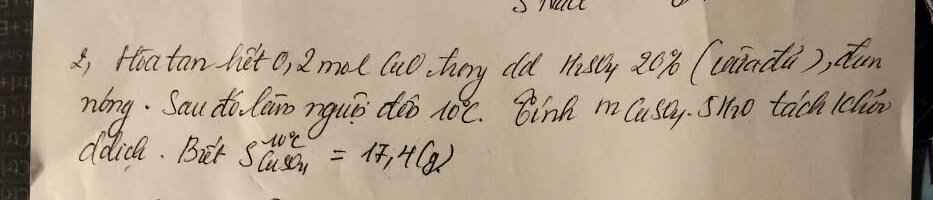 2, Hòa tan hết 0,2 mol CuO trong dd H₂SO₄ 20% (vừa đủ), đun
nóng. Sau đó làm nguội đến 10°C. Tính m CuSO₄.5H₂O tách khỏi
ddịch. Biết S 10°C CuSO₄ = 17,4(g)